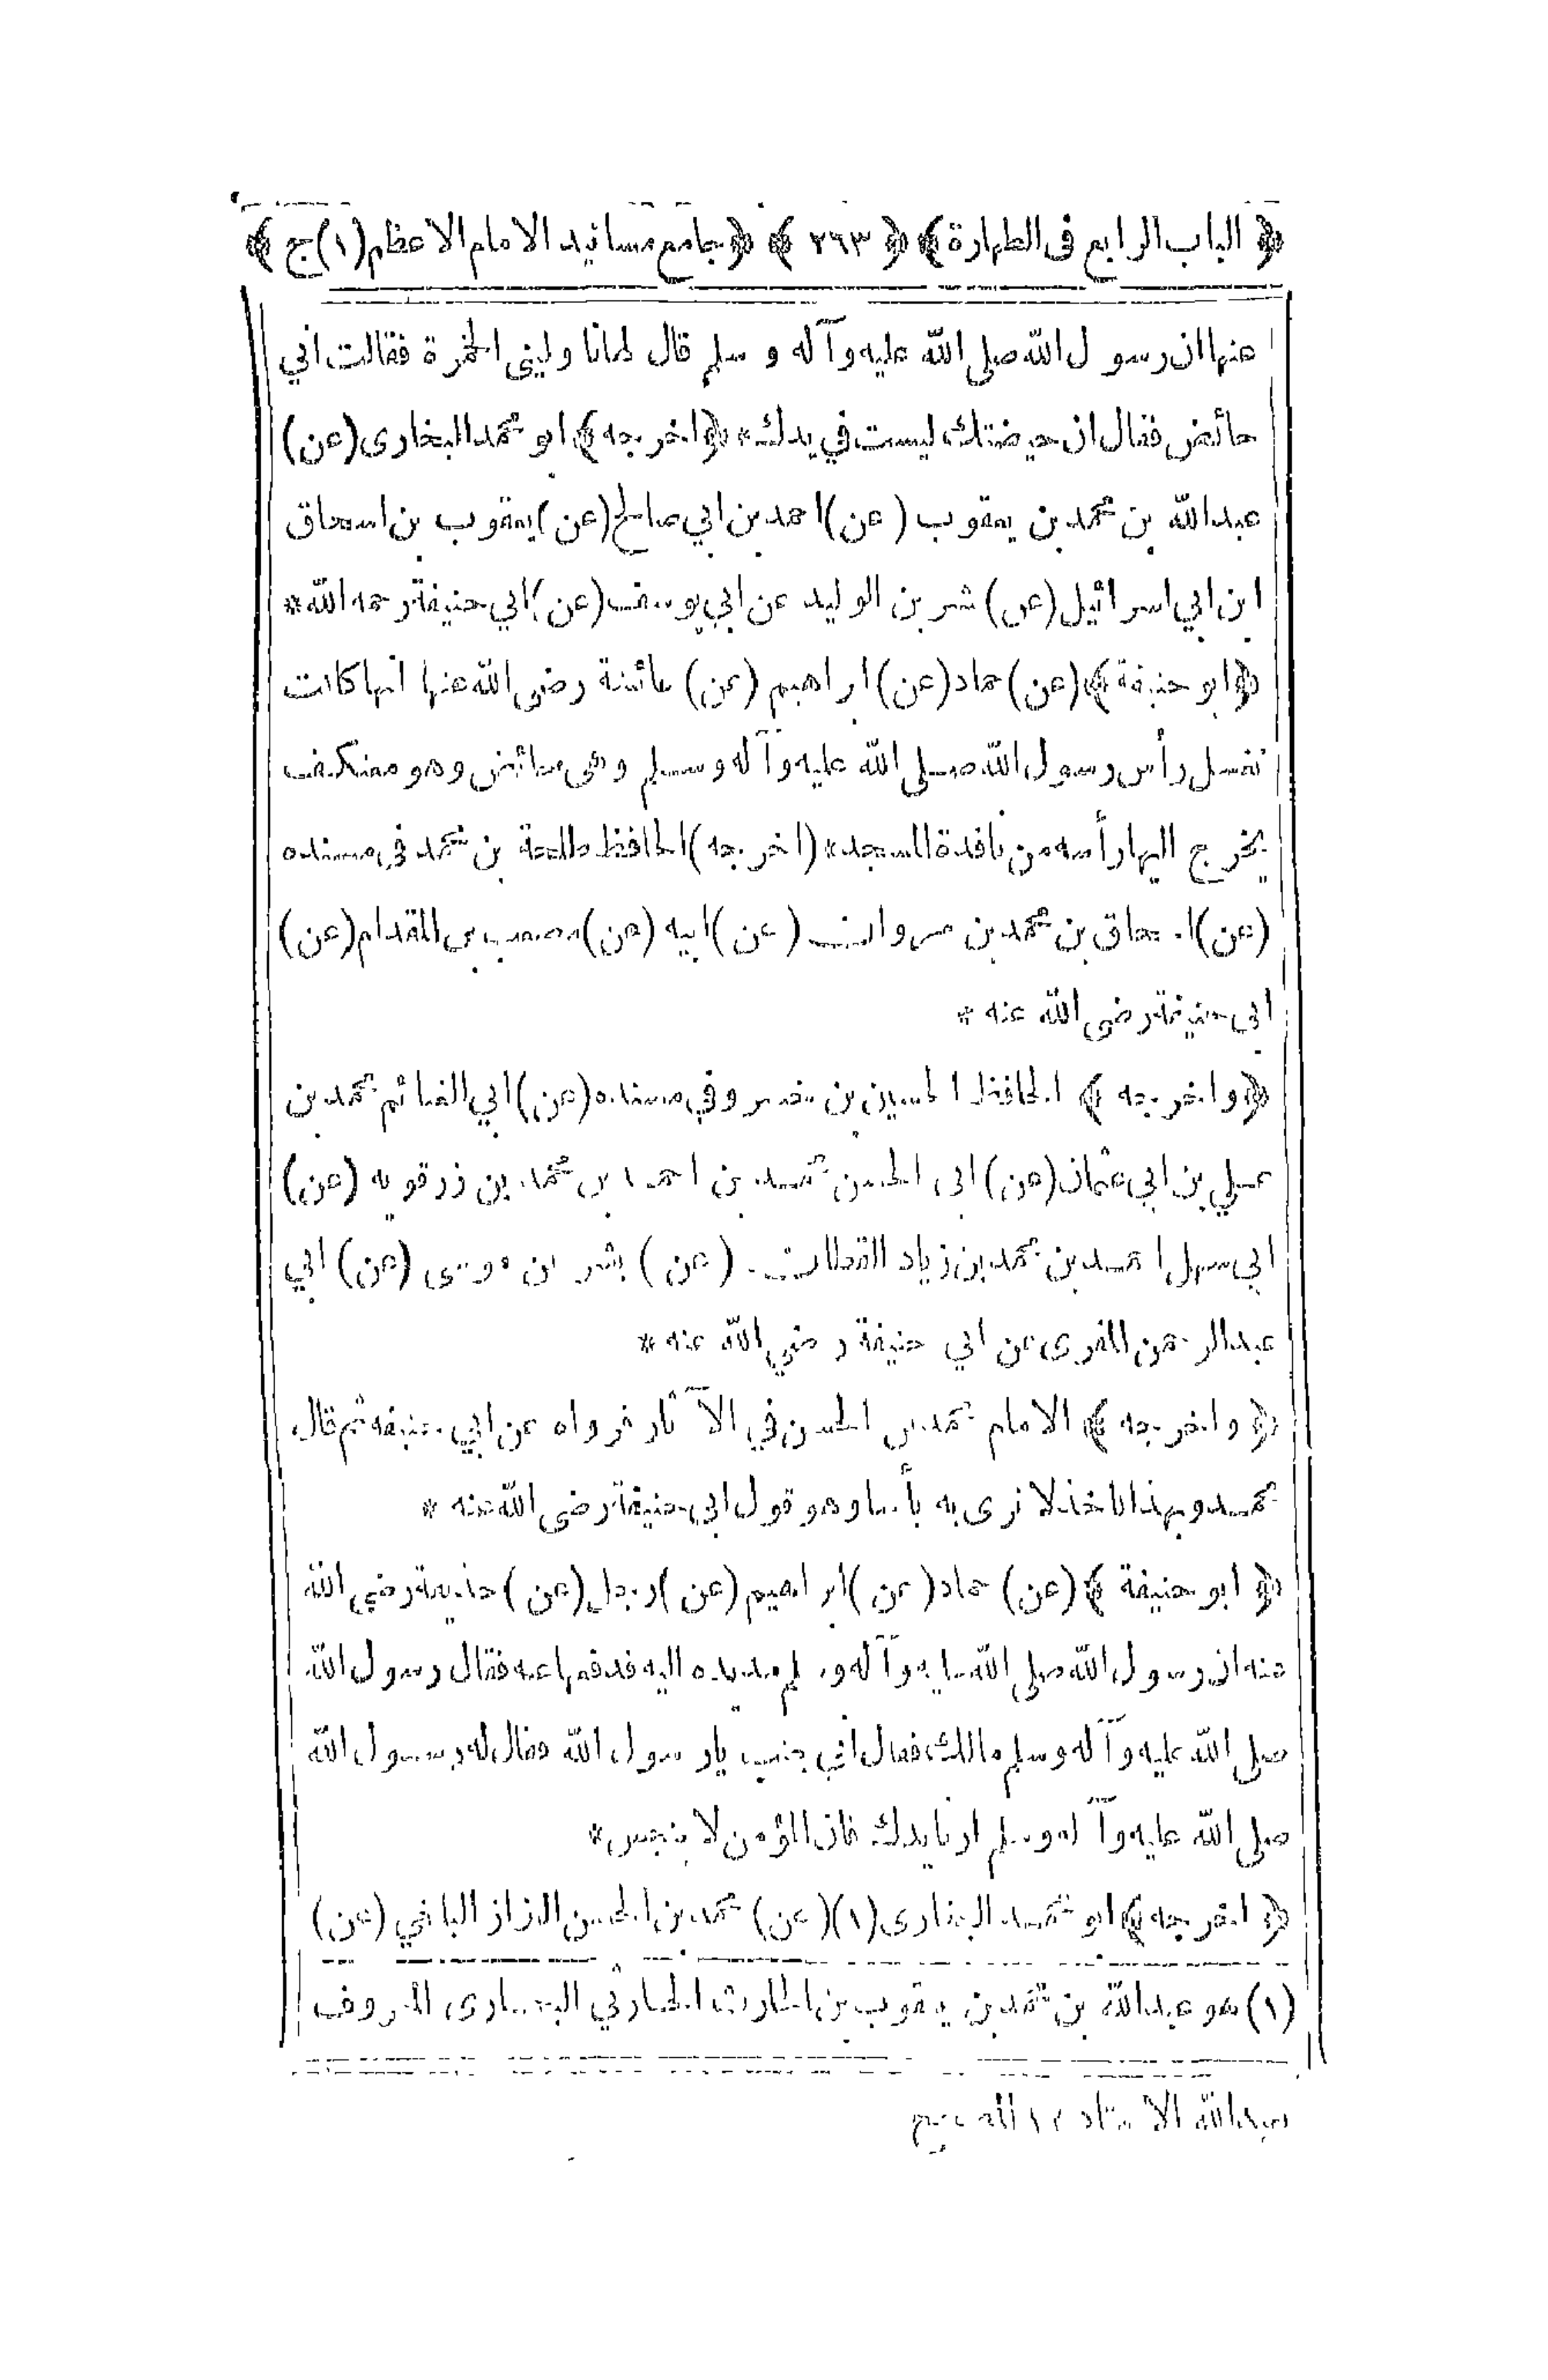 ﴿ الباب الرابع فى الطهارة ﴾ ﴿ ٢٦٣ ﴾ ﴿ جامع مسانيد الامام الاعظم (١) ج ﴾
عنها ان رسول الله صلى الله عليه وآله وسلم قال لها ناولينى الخمرة فقالت اني
حائض فقال ان حيضتك ليست في يدك * ﴿ اخرجه ﴾ ابو محمد البخارى (عن)
عبد الله بن محمد بن يعقوب (عن) احمد بن ابي صالح (عن) يعقوب بن اسحاق
ابن ابي اسرائيل (عن) بشر بن الوليد عن ابي يوسف (عن) ابي حنيفة رحمه الله *
﴿ ابو حنيفة ﴾ (عن) حماد (عن) ابراهيم (عن) عائشة رضى الله عنها انها كانت
تغسل رأس رسول الله صلى الله عليه وآله وسلم وهى حائض وهو معتكف
يخرج اليها رأسه من نافذة المسجد * (اخرجه) الحافظ طلحة بن محمد فى مسنده
(عن) اسحاق بن محمد بن مروان (عن) ابيه (عن) مصعب بن المقدام (عن)
ابى حنيفة رضى الله عنه *
﴿ واخرجه ﴾ الحافظ الحسين بن خسرو في مسنده (عن) ابي الغنائم محمد بن
علي بن ابي عثمان (عن) ابى الحسن محمد بن احمد بن محمد بن زرقويه (عن)
ابى سهل احمد بن محمد بن زياد القطان (عن) بشر بن موسى (عن) ابي
عبد الرحمن المقرى عن ابي حنيفة رضي الله عنه *
﴿ واخرجه ﴾ الامام محمد بن الحسن في الآثار فرواه عن ابي حنيفة ثم قال
محمد وبهذا ناخذ لا نرى به بأسا وهو قول ابي حنيفة رضى الله عنه *
﴿ ابو حنيفة ﴾ (عن) حماد (عن) ابراهيم (عن) رجل (عن) حذيفة رضي الله
عنه ان رسول الله صلى الله عليه وآله وسلم مد يده اليه فدفعها عنه فقال رسول الله
صلى الله عليه وآله وسلم مالك فقال اني جنب يا رسول الله فقال له رسول الله
صلى الله عليه وآله وسلم ارنا يدك فان المؤمن لا ينجس *
﴿ اخرجه ﴾ ابو محمد البخارى (١) (عن) محمد بن الحسن البزاز البلخي (عن)
(١) هو عبد الله بن محمد بن يعقوب بن الحارث الحارثي البخارى المعروف
بعبد الله الاستاذ ١٢